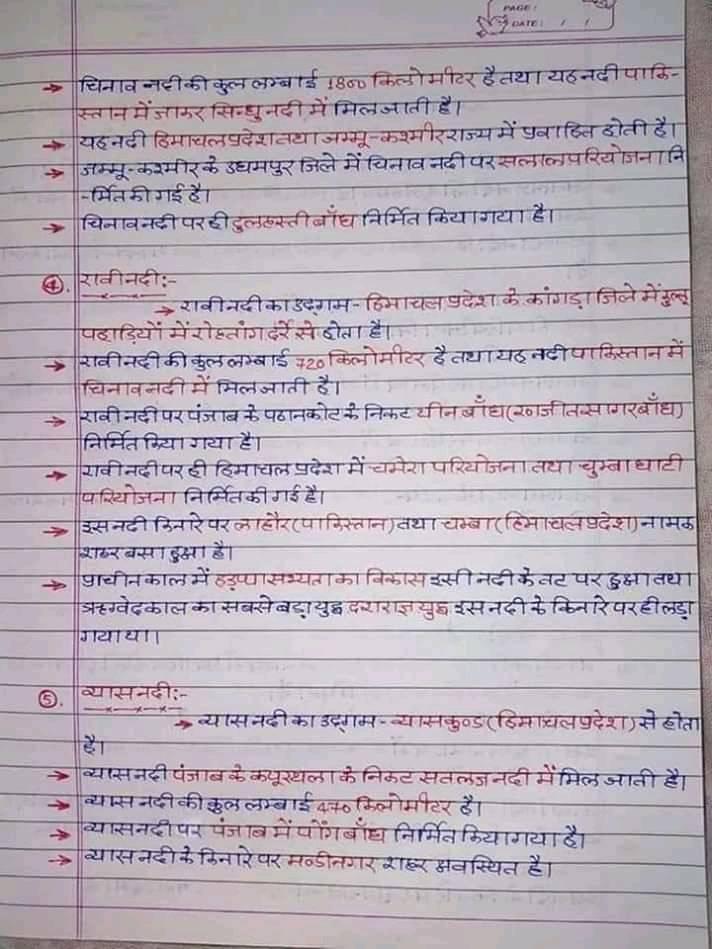 PAGE:
DATE: / /
→ चिनाब नदी की कुल लम्बाई 1800 किलोमीटर है तथा यह नदी पाकि-
स्तान में जाकर सिन्धु नदी में मिल जाती है।
→ यह नदी हिमाचल प्रदेश तथा जम्मू-कश्मीर राज्य में प्रवाहित होती है।
→ जम्मू-कश्मीर के उधमपुर जिले में चिनाव नदी पर सलाल परियोजना नि
-र्मित की गई है।
→ चिनाव नदी पर ही दुलहस्ती बाँध निर्मित किया गया है।
④. रावी नदी:-
→ रावी नदी का उद्गम - हिमाचल प्रदेश के कांगड़ा जिले में कुल्लू
पहाड़ियों में रोहतांग दर्रे से होता है।
→ रावी नदी की कुल लम्बाई 720 किलोमीटर है तथा यह नदी पाकिस्तान में
चिनाव नदी में मिल जाती है।
→ रावी नदी पर पंजाब के पठानकोट के निकट थीन बाँध (रणजीत सागर बाँध)
निर्मित किया गया है।
→ रावी नदी पर ही हिमाचल प्रदेश में चमेरा परियोजना तथा चुम्बा घाटी
परियोजना निर्मित की गई है।
→ इस नदी किनारे पर लाहौर (पाकिस्तान) तथा चम्बा (हिमाचल प्रदेश) नामक
शहर बसा हुआ है।
→ प्राचीन काल में हड़प्पा सभ्यता का विकास इसी नदी के तट पर हुआ तथा
ऋग्वेद काल का सबसे बड़ा युद्ध दशराज्ञ युद्ध इस नदी के किनारे पर ही लड़ा
गया था।
⑤. व्यास नदी:-
→ व्यास नदी का उद्गम - व्यास कुण्ड (हिमाचल प्रदेश) से होता
है।
→ व्यास नदी पंजाब के कपूरथला के निकट सतलज नदी में मिल जाती है।
→ व्यास नदी की कुल लम्बाई 470 किलोमीटर है।
→ व्यास नदी पर पंजाब में पोंग बाँध निर्मित किया गया है।
→ व्यास नदी के किनारे पर मण्डी नगर शहर अवस्थित है।